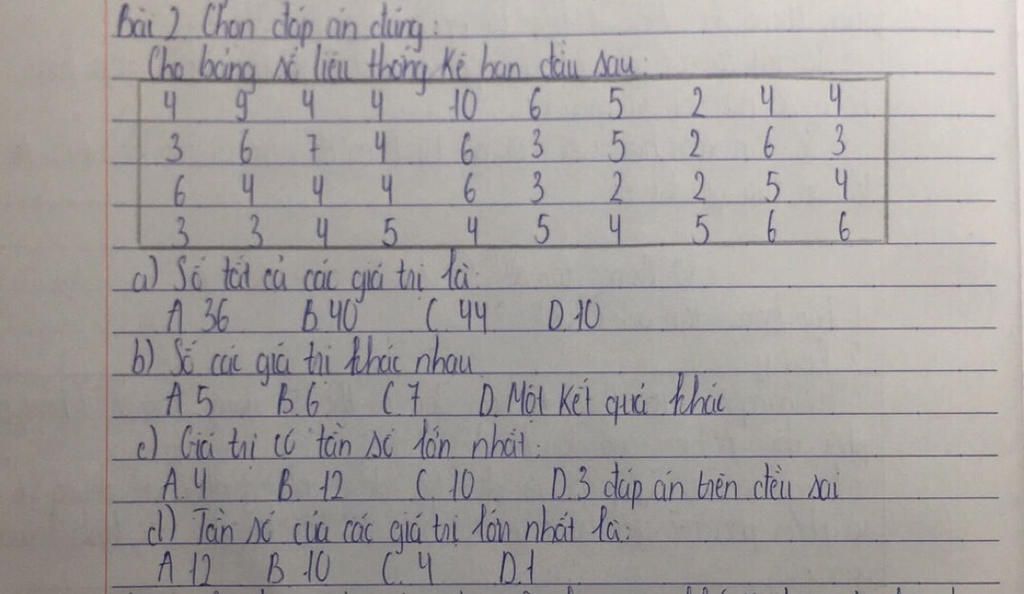 Bài 2 Chọn đáp án đúng:
Cho bảng số liệu thống kê ban đầu sau:
4 9 4 4 10 6 5 2 4 4
3 6 7 4 6 3 5 2 6 3
6 4 4 4 6 3 2 2 5 4
3 3 4 5 4 5 4 5 6 6
a) Số tất cả các giá trị là:
A 36 B. 40 C. 44 D. 10
b) Số các giá trị khác nhau
A 5 B. 6 C 7 D. Một kết quả khác
c) Giá trị có tần số lớn nhất:
A. 4 B. 12 C. 10 D. 3 đáp án trên đều sai
d) Tần số của các giá trị lớn nhất là:
A 12 B. 10 C. 4 D. 1